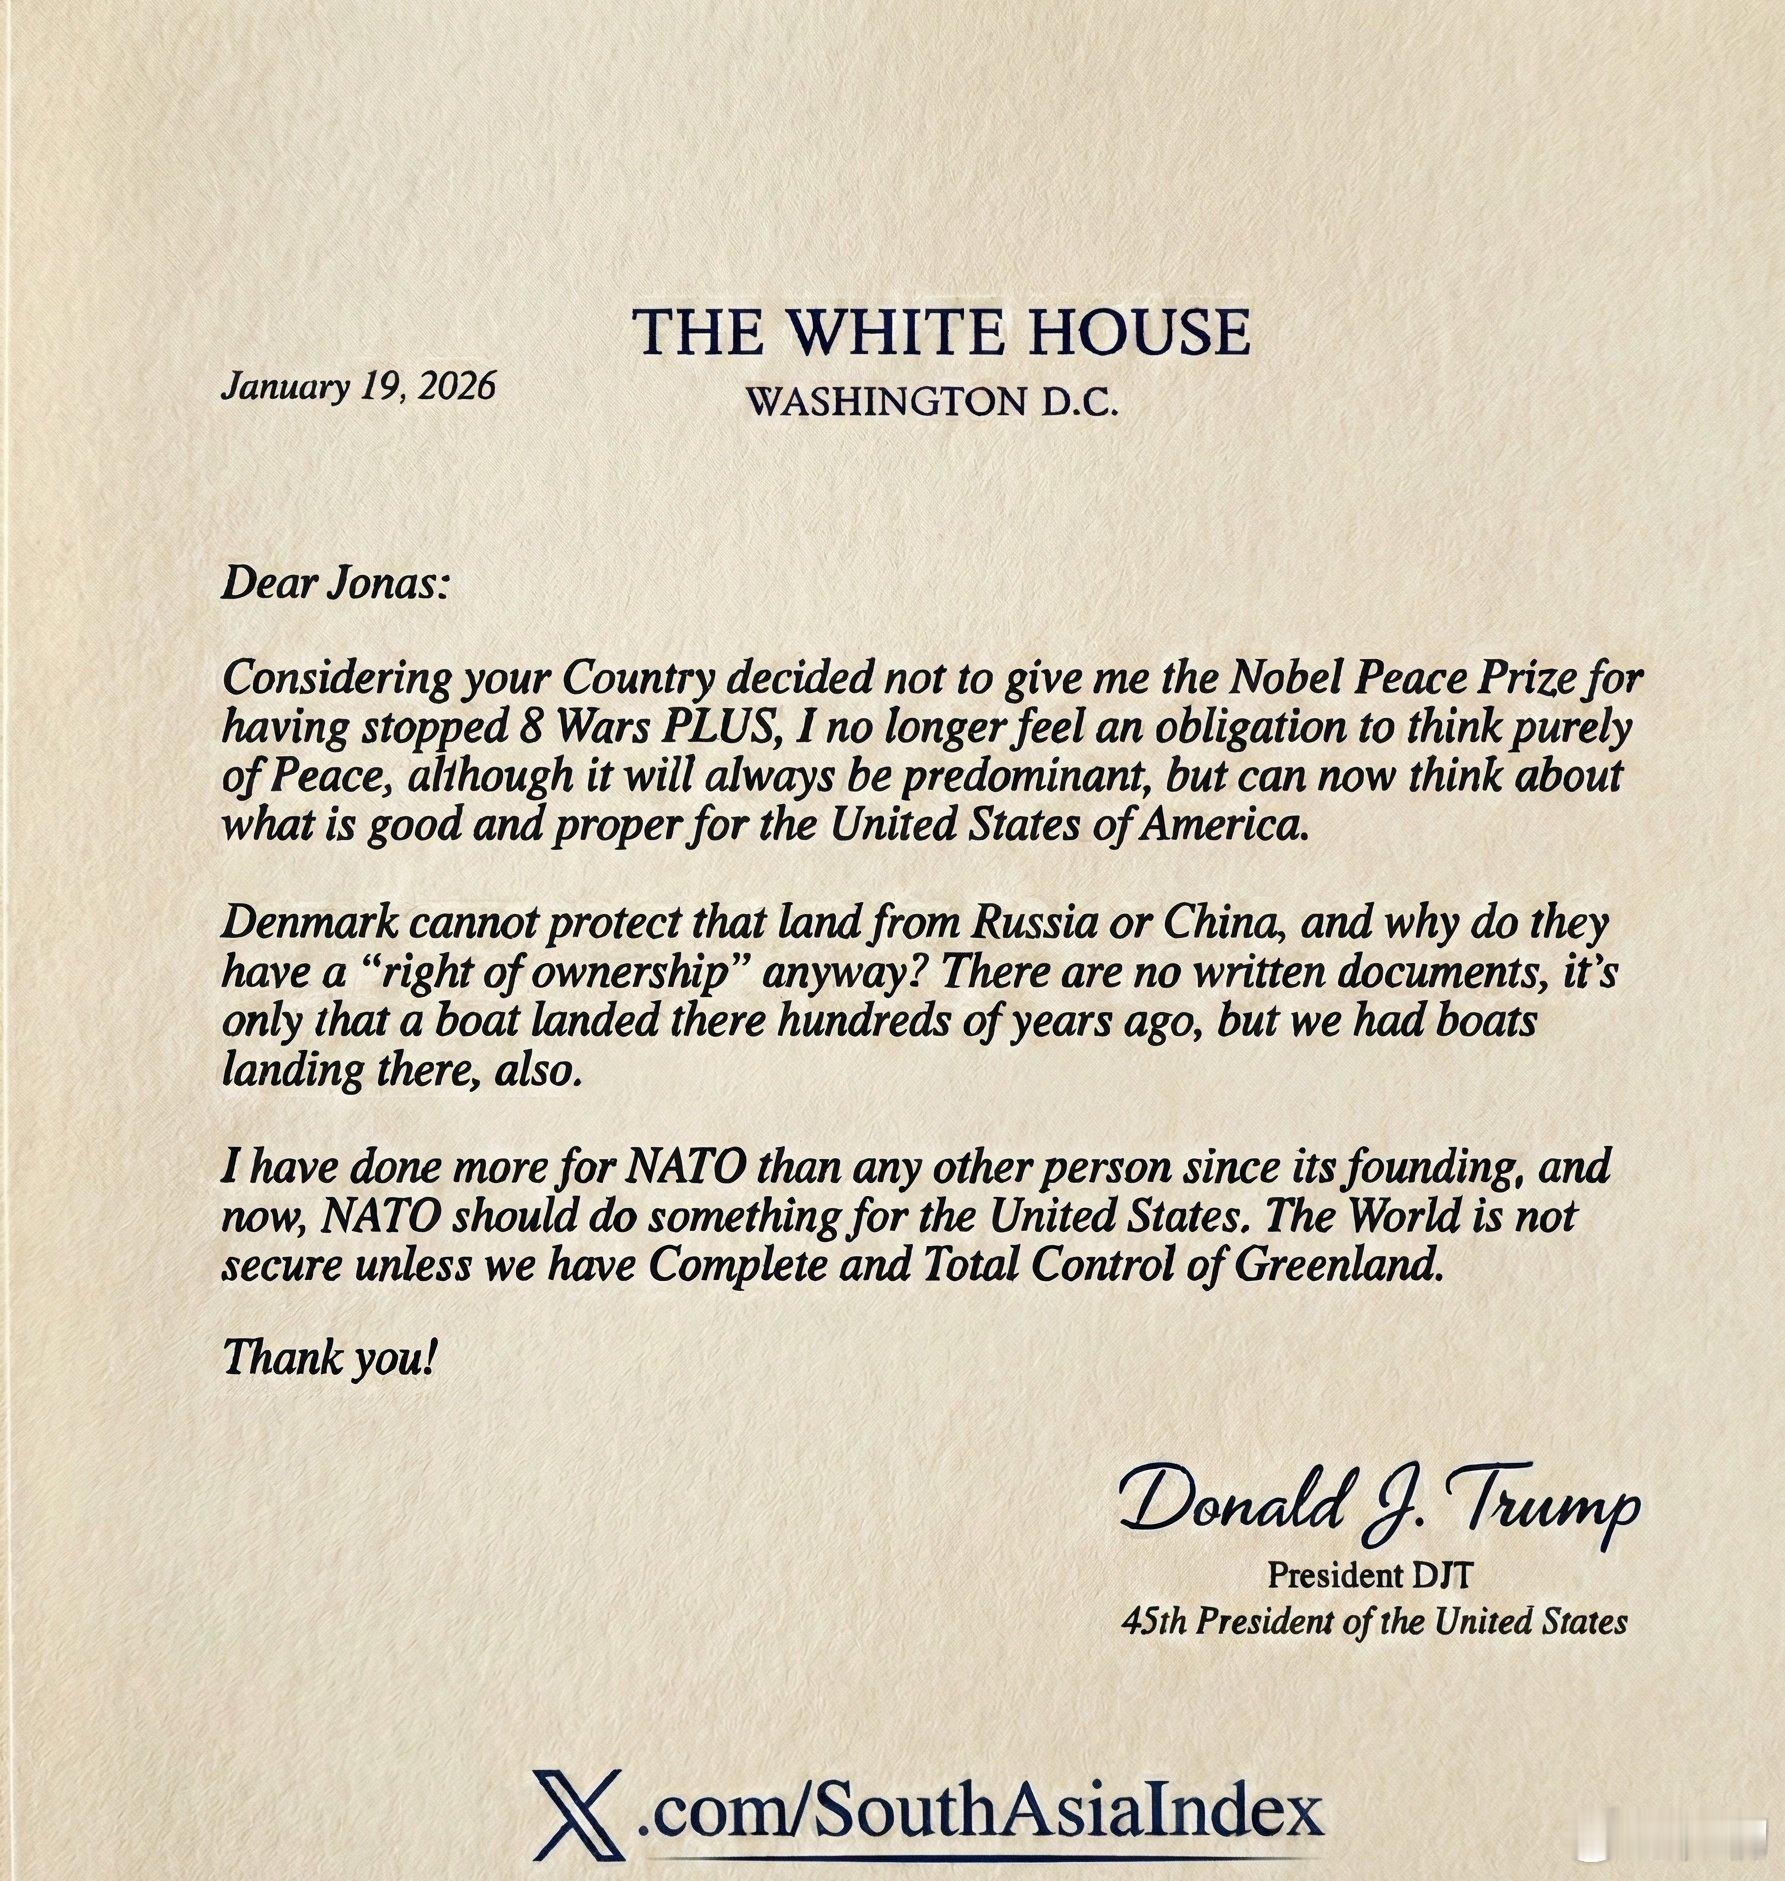 THE WHITE HOUSE
January 19, 2026
WASHINGTON D.C.
Dear Jonas:
Considering your Country decided not to give me the Nobel Peace Prize for
having stopped 8 Wars PLUS, I no longer feel an obligation to think purely
of Peace, although it will always be predominant, but can now think about
what is good and proper for the United States of America.
Denmark cannot protect that land from Russia or China, and why do they
have a “right of ownership” anyway? There are no written documents, it’s
only that a boat landed there hundreds of years ago, but we had boats
landing there, also.
I have done more for NATO than any other person since its founding, and
now, NATO should do something for the United States. The World is not
secure unless we have Complete and Total Control of Greenland.
Thank you!
Donald J. Trump
President DJT
45th President of the United States
X.com/SouthAsiaIndex